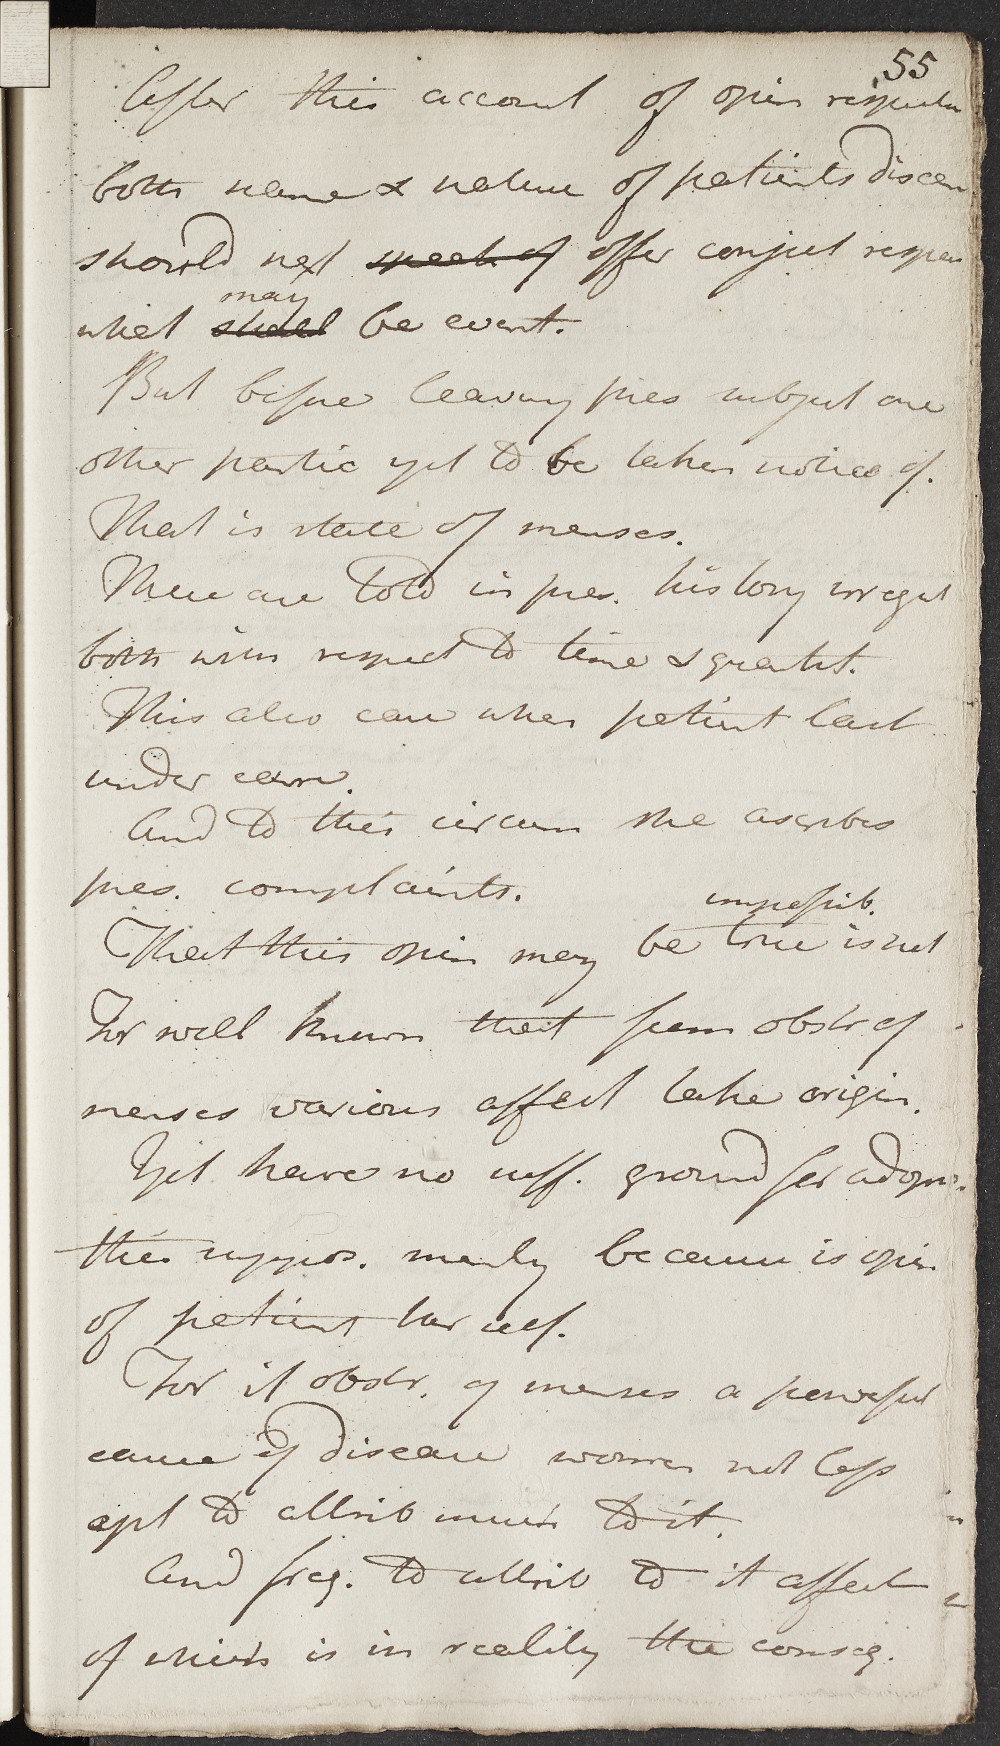 55
After this account of opin respectin
both name & nature of patients diseas
should next speak of offer conject respec
what shall may be event.
But before leaving pres subject one
other partic yet to be taken notice of.
That is state of menses.
These are told in pres. history irregul
both with respect to time & quantit.
This also case when patient last
under care.
And to this circum she ascribes
pres. complaints.
That this opin may be true is not impossib.
For well known that from obstr of
menses various affect take origin.
Yet have no suff. ground for adopn.
this suppos. merely because is opin.
of patient her self.
For if obstr. of menses a powerful
cause of disease women not less
apt to attrib much to it.
And freq. to attrib to it affect
of which is in reality the conseq.